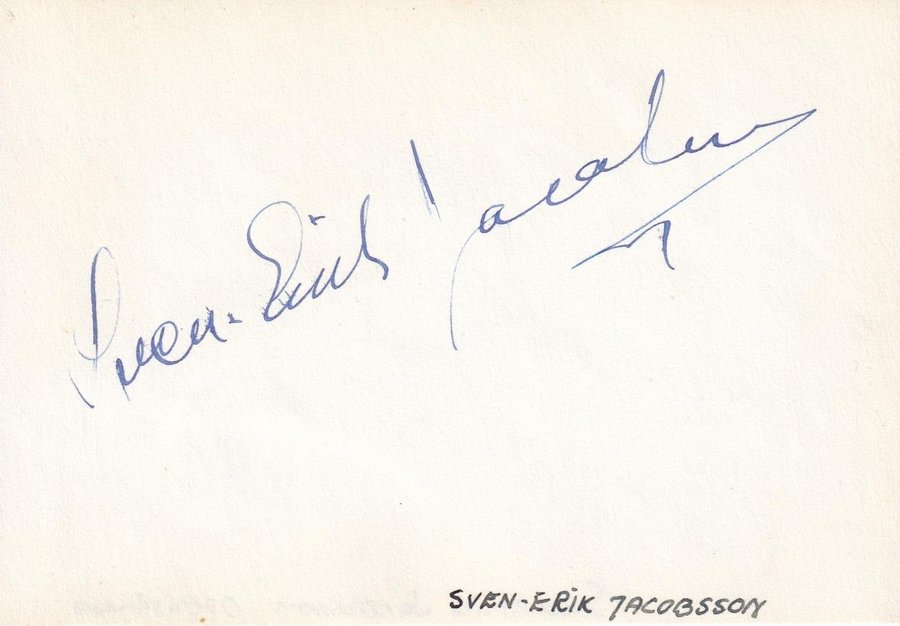 Sven-Erik Jacobsson
SVEN-ERIK JACOBSSON